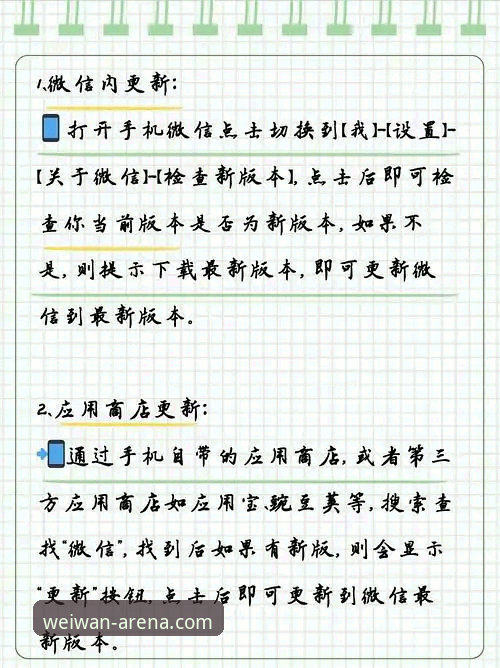 1、微信内更新:
打开手机微信点击切换到【我】-【设置】-
【关于微信】-【检查新版本】，点击后即可检
查你当前版本是否为新版本，如果不
是，则提示下载最新版本，即可更新微
信到最新版本。
2、应用商店更新:
通过手机自带的应用商店，或者第三
方应用商店如应用宝、豌豆荚等，搜索查
找“微信”，找到后如果有新版，则会显示
“更新”按钮，点击后即可更新到微信最
新版本。
weiwan-arena.com